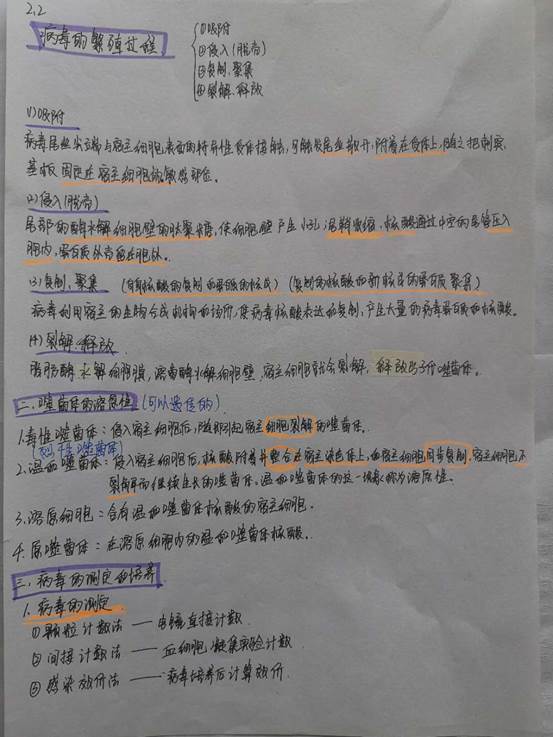 2.2
病毒的繁殖过程
①吸附
②侵入(脱壳)
③复制、聚集
④裂解、释放
(1)吸附
病毒尾丝尖端与宿主细胞表面的特异性受体接触,可触发尾丝散开,附着在受体上,随之把刺突、
基板固定在宿主细胞的敏感部位。
(2)侵入(脱壳)
尾部的酶水解细胞壁的肽聚糖,使细胞壁产生小孔,尾鞘收缩,核酸通过中空的尾管压入
胞内,蛋白质外壳留在胞外。
(3)复制、聚集 (病毒核酸的复制和蛋白质的合成)(复制的核酸和新合成的蛋白质聚集)
病毒利用宿主的生物合成机构和场所,使病毒核酸表达和复制,产生大量的病毒蛋白质和核酸。
(4)裂解、释放
脂肪酶水解细胞膜,溶菌酶水解细胞壁,宿主细胞就会裂解,释放出子代噬菌体。
二、噬菌体的溶原性(可以遗传的)
1.毒性噬菌体:侵入宿主细胞后,随即引起宿主细胞裂解的噬菌体。
(烈性噬菌体)
2.温和噬菌体:侵入宿主细胞后,核酸附着并整合在宿主染色体上,和宿主细胞同步复制,宿主细胞不
裂解而继续生长的噬菌体,温和噬菌体的这一现象称为溶原性。
3.溶原细胞:含有温和噬菌体核酸的宿主细胞。
4.原噬菌体:在溶原细胞内的温和噬菌体核酸。
三、病毒的测定和培养
1.病毒的测定
①颗粒计数法——电镜直接计数
②间接计数法——血细胞凝集实验计数
③感染效价法——病毒培养后计算效价